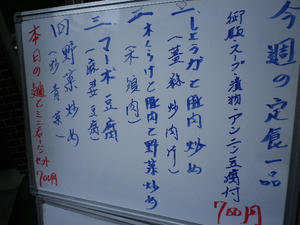 今週の定食一品
御飯スープ・漬物・アンニン豆腐付
700円
一 しょうがと豚肉炒め
(薑絲炒肉片)
二 木くらげと豚肉と野菜炒め
(木須肉)
三 マーボ豆腐
(麻婆豆腐)
四 野菜炒め
(炒青菜)
本日の麺とミニチャーハンセット
700円